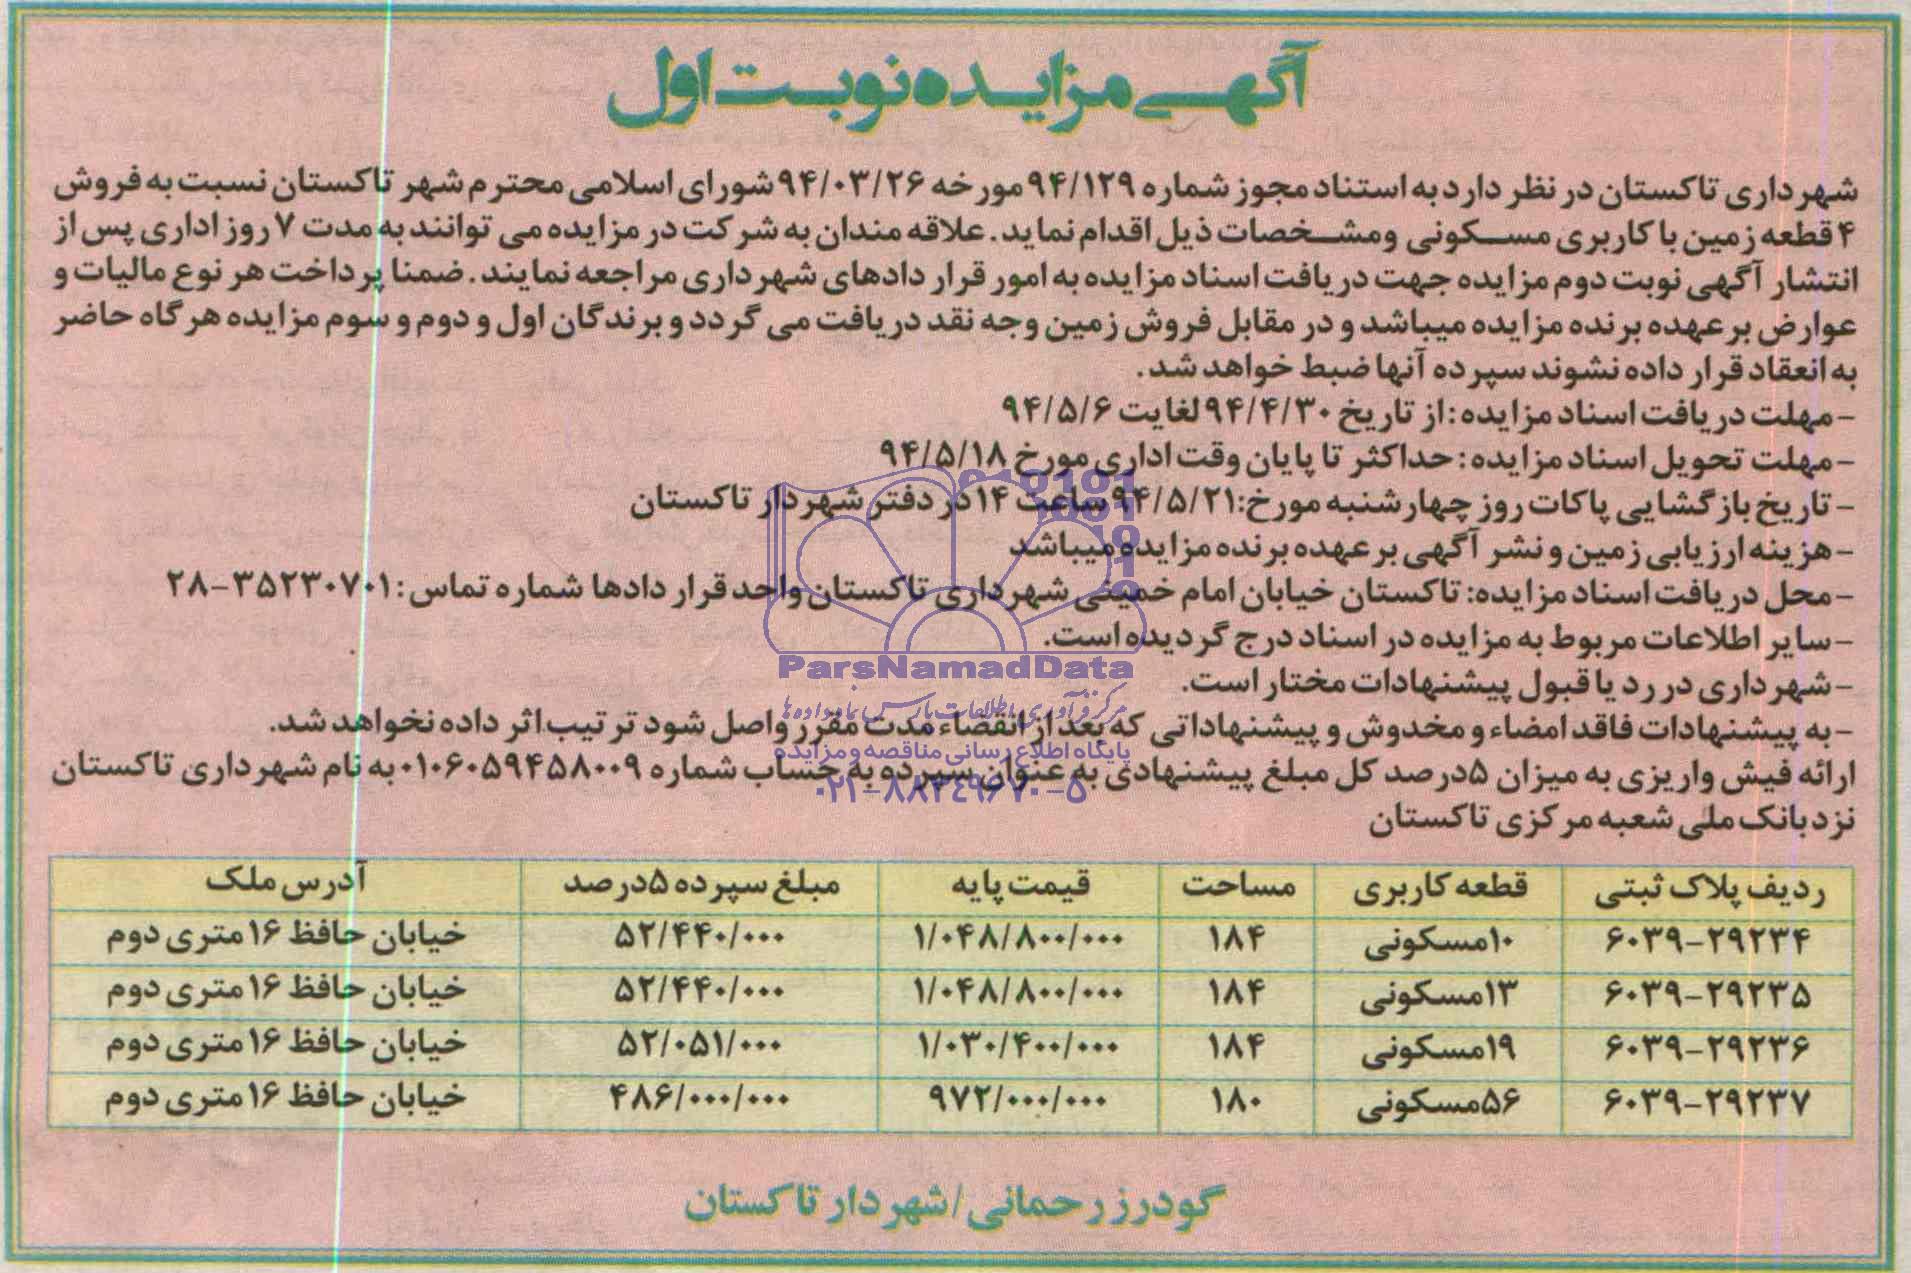 آگهی مزایده نوبت اول
شهرداری تاکستان در نظر دارد به استناد مجوز شماره ۹۴/۱۲۹ مورخه ۹۴/۰۳/۲۶ شورای اسلامی محترم شهر تاکستان نسبت به فروش
۴ قطعه زمین با کاربری مسکونی ومشخصات ذیل اقدام نماید. علاقه مندان به شرکت در مزایده می توانند به مدت ۷ روز اداری پس از
انتشار آگهی نوبت دوم مزایده جهت دریافت اسناد مزایده به امور قرار دادهای شهرداری مراجعه نمایند. ضمنا پرداخت هر نوع مالیات و
عوارض بر عهده برنده مزایده میباشد و در مقابل فروش زمین وجه نقد دریافت می گردد و برندگان اول و دوم و سوم مزایده هر گاه حاضر
به انعقاد قرار داده نشوند سپرده آنها ضبط خواهد شد.
- مهلت دریافت اسناد مزایده: از تاریخ ۹۴/۴/۳۰ لغایت ۹۴/۵/۶
- مهلت تحویل اسناد مزایده: حداکثر تا پایان وقت اداری مورخ ۹۴/۵/۱۸
- تاریخ بازگشایی پاکات روز چهارشنبه مورخ: ۹۴/۵/۲۱ ساعت ۱۴ در دفتر شهردار تاکستان
- هزینه ارزیابی زمین و نشر آگهی بر عهده برنده مزایده میباشد
- محل دریافت اسناد مزایده: تاکستان خیابان امام خمینی شهرداری تاکستان واحد قرار دادها شماره تماس: ۳۵۲۳۰۷۰۱-۲۸
- سایر اطلاعات مربوط به مزایده در اسناد درج گردیده است.
ParsNamadData
- شهرداری در رد یا قبول پیشنهادات مختار است.
مرکز فرآوری اطلاعات پارس نماد داده ها
- به پیشنهادات فاقد امضاء و مخدوش و پیشنهاداتی که بعد از انقضاء مدت مقرر واصل شود ترتیب اثر داده نخواهد شد.
پایگاه اطلاع رسانی مناقصه و مزایده
ارائه فیش واریزی به میزان ۵درصد کل مبلغ پیشنهادی به عنوان سپرده به حساب شماره ۰۱۰۶۰۵۹۴۵۸۰۰۹ به نام شهرداری تاکستان
۰۲۱-۸۸۳۴۹۶۷۰-۵
نزد بانک ملی شعبه مرکزی تاکستان
ردیف پلاک ثبتی قطعه کاربری مساحت قیمت پایه مبلغ سپرده ۵درصد آدرس ملک
۶۰۳۹-۲۹۲۳۴ ۱۰مسکونی ۱۸۴ ۱/۰۴۸/۸۰۰/۰۰۰ ۵۲/۴۴۰/۰۰۰ خیابان حافظ ۱۶متری دوم
۶۰۳۹-۲۹۲۳۵ ۱۳مسکونی ۱۸۴ ۱/۰۴۸/۸۰۰/۰۰۰ ۵۲/۴۴۰/۰۰۰ خیابان حافظ ۱۶متری دوم
۶۰۳۹-۲۹۲۳۶ ۱۹مسکونی ۱۸۴ ۱/۰۳۰/۴۰۰/۰۰۰ ۵۲/۰۵۱/۰۰۰ خیابان حافظ ۱۶متری دوم
۶۰۳۹-۲۹۲۳۷ ۵۶مسکونی ۱۸۰ ۹۷۲/۰۰۰/۰۰۰ ۴۸۶/۰۰۰/۰۰۰ خیابان حافظ ۱۶متری دوم
گودرز رحمانی/شهردار تاکستان